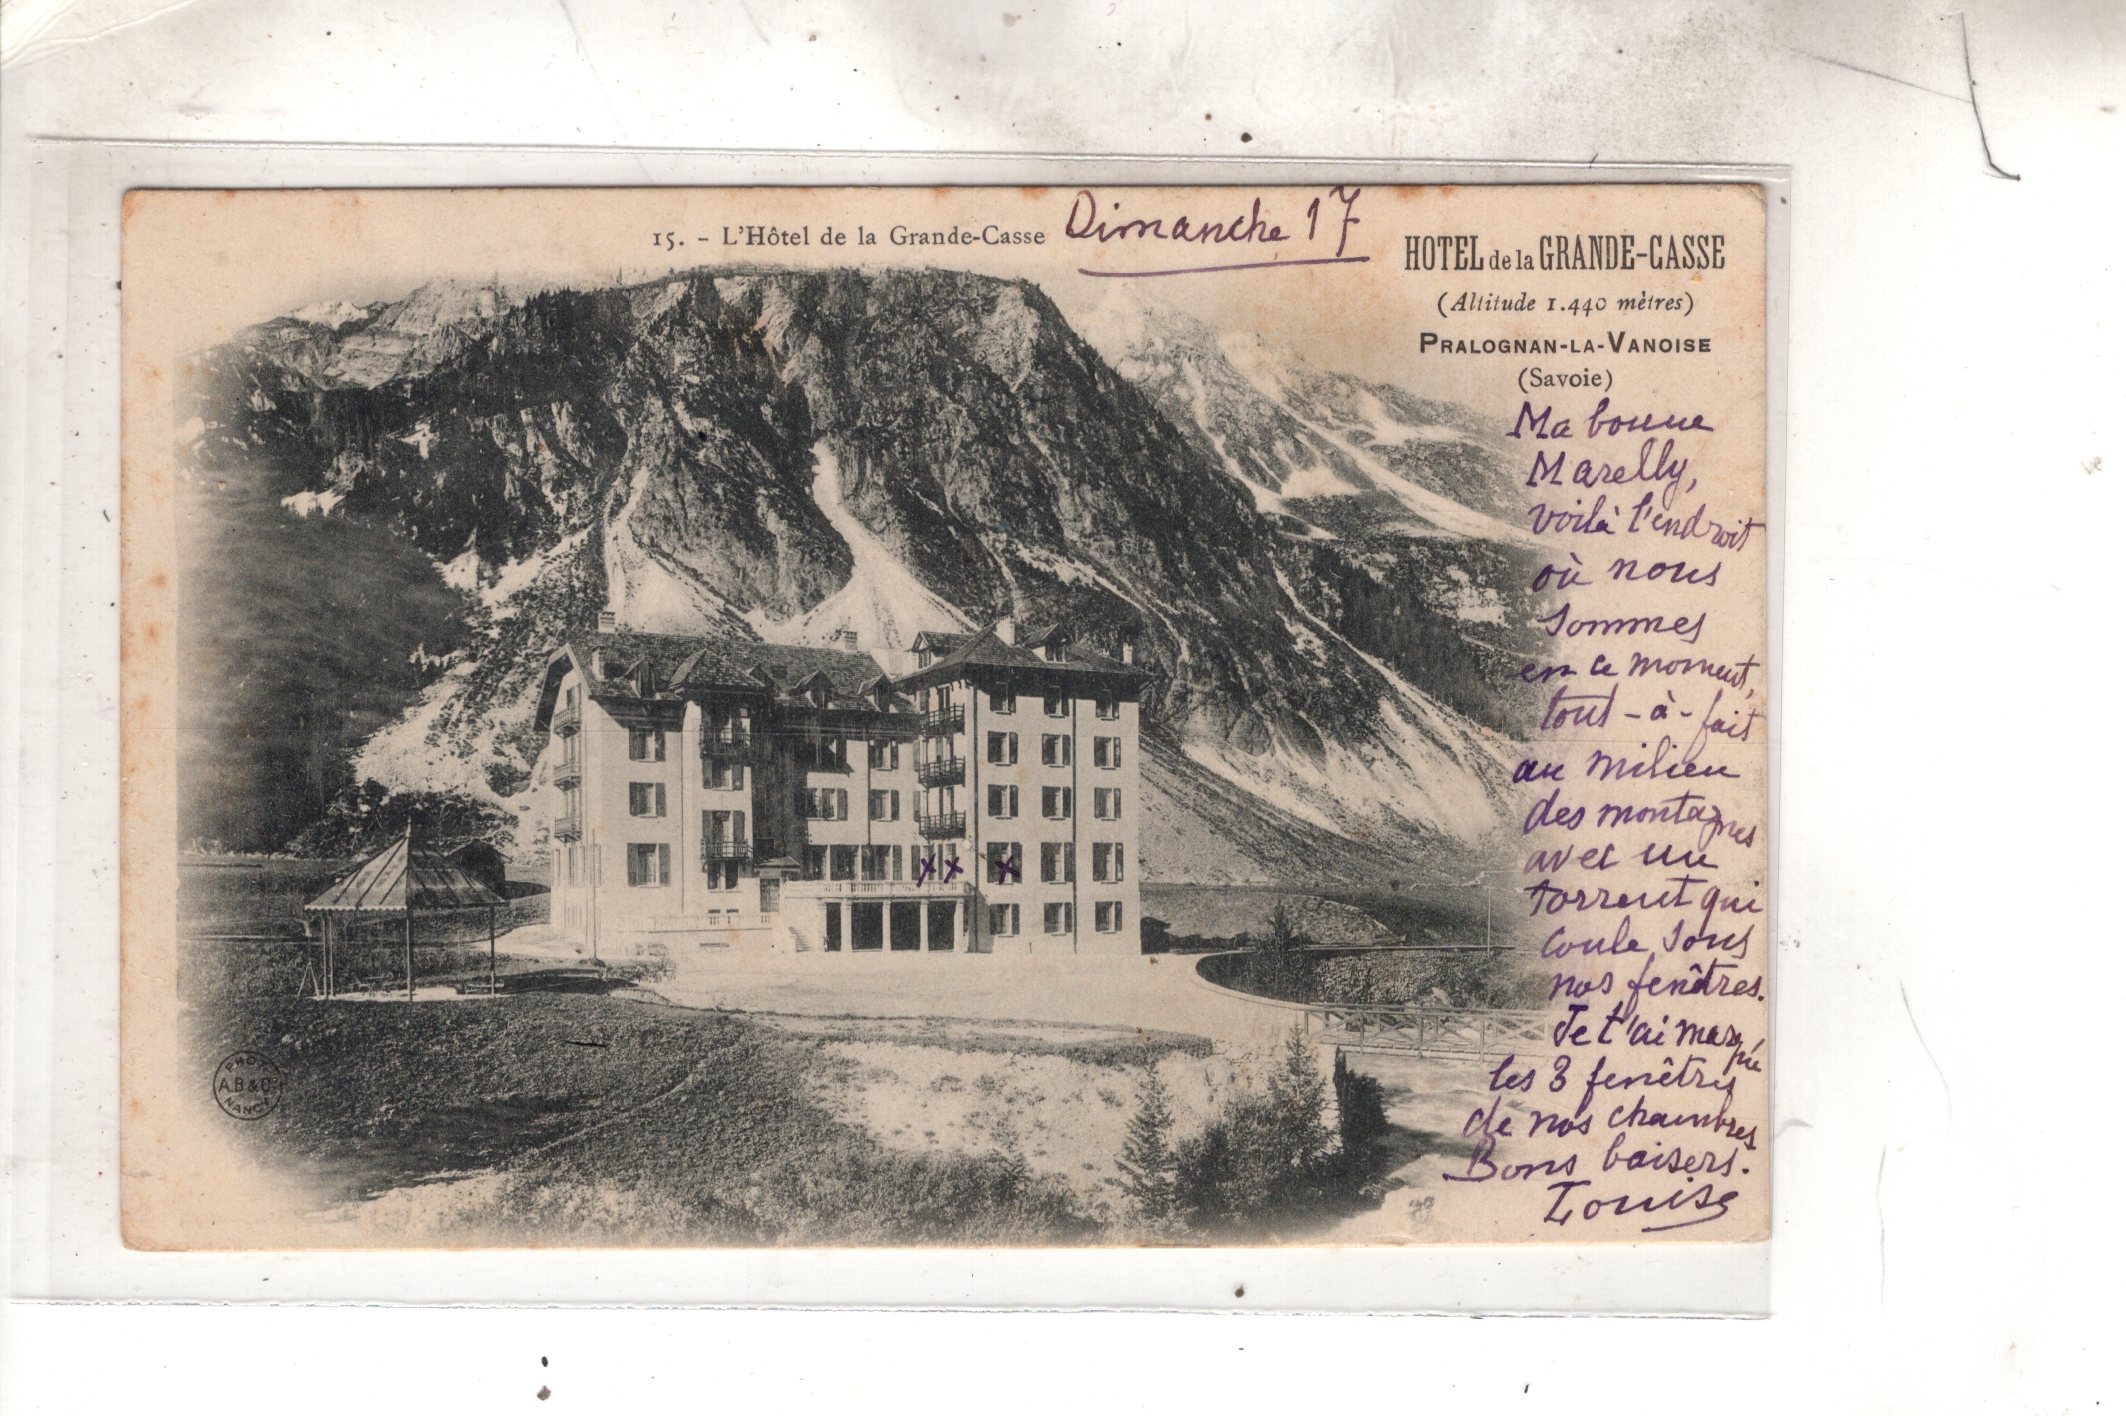 15. - L'Hôtel de la Grande-Casse
Dimanche 17
HOTEL de la GRANDE-CASSE
(Altitude 1.440 mètres)
PRALOGNAN-LA-VANOISE
(Savoie)
Ma bonne
Marelly,
voilà l'endroit
où nous
sommes
en ce moment,
tout-à-fait
au milieu
des montagnes
avec un
torrent qui
coule sous
nos fenêtres.
Je t'ai marqué
les 3 fenêtres
de nos chambres
Bons baisers.
Louise
xx x
PHOT.
A.B & Cº
NANCY